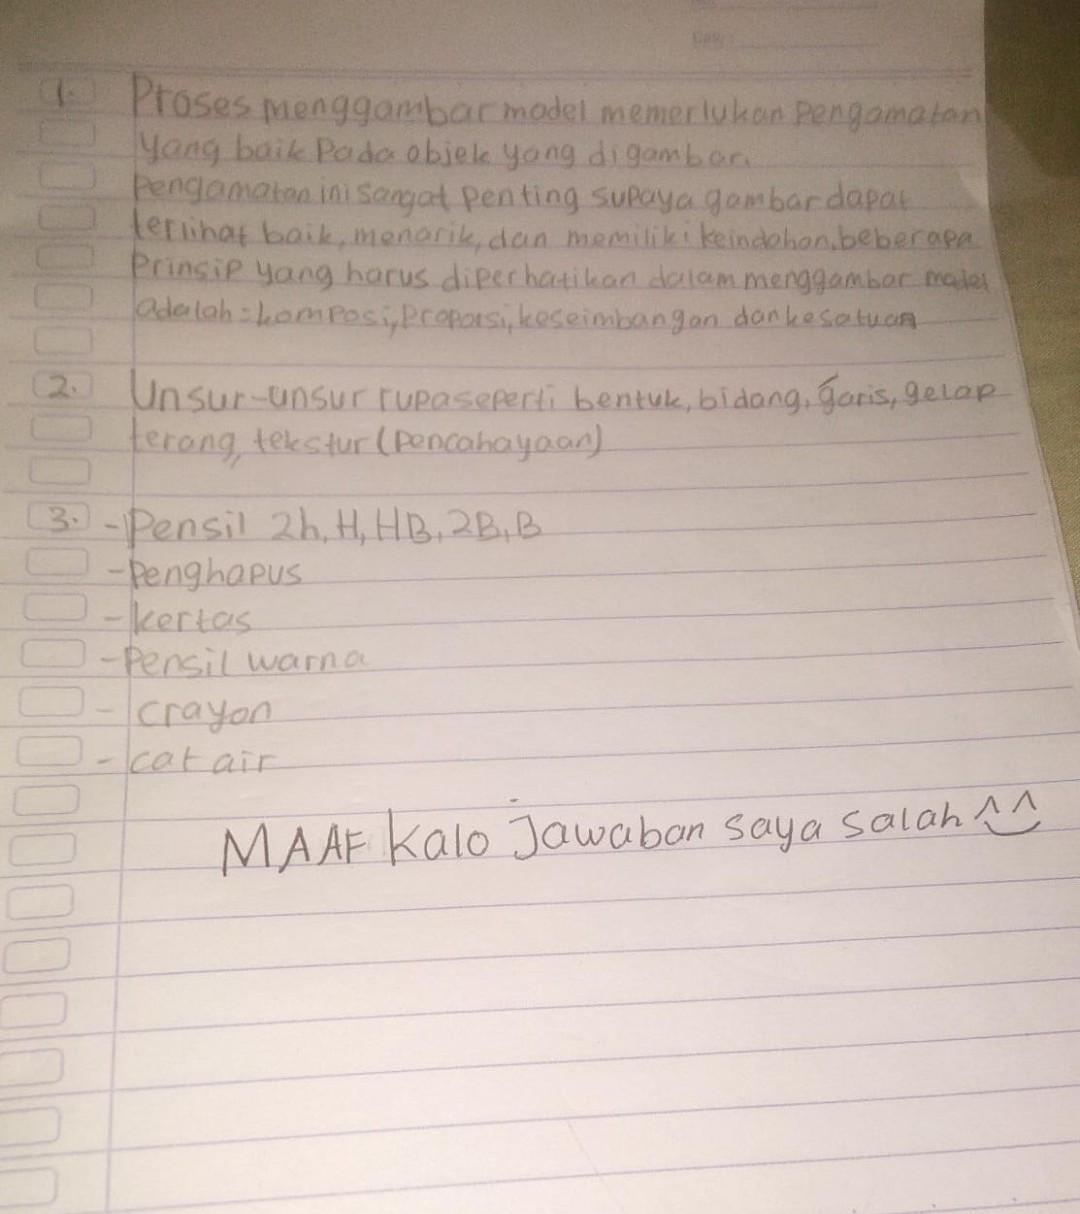 1. Proses menggambar model memerlukan Pengamatan
yang baik Pada objek yang digambar.
Pengamatan ini sangat penting supaya gambar dapat
terlihat baik, menarik, dan memiliki keindahan. beberapa
Prinsip yang harus diperhatikan dalam menggambar model
adalah : komposi, Proporsi, keseimbangan dan kesatuan
2. Unsur-unsur rupa seperti bentuk, bidang, garis, gelap
terang, tekstur (Pencahayaan)
3. - Pensil 2h, H, HB, 2B, B
- Penghapus
- kertas
- Pensil warna
- crayon
- cat air
MAAF kalo jawaban saya salah ^^